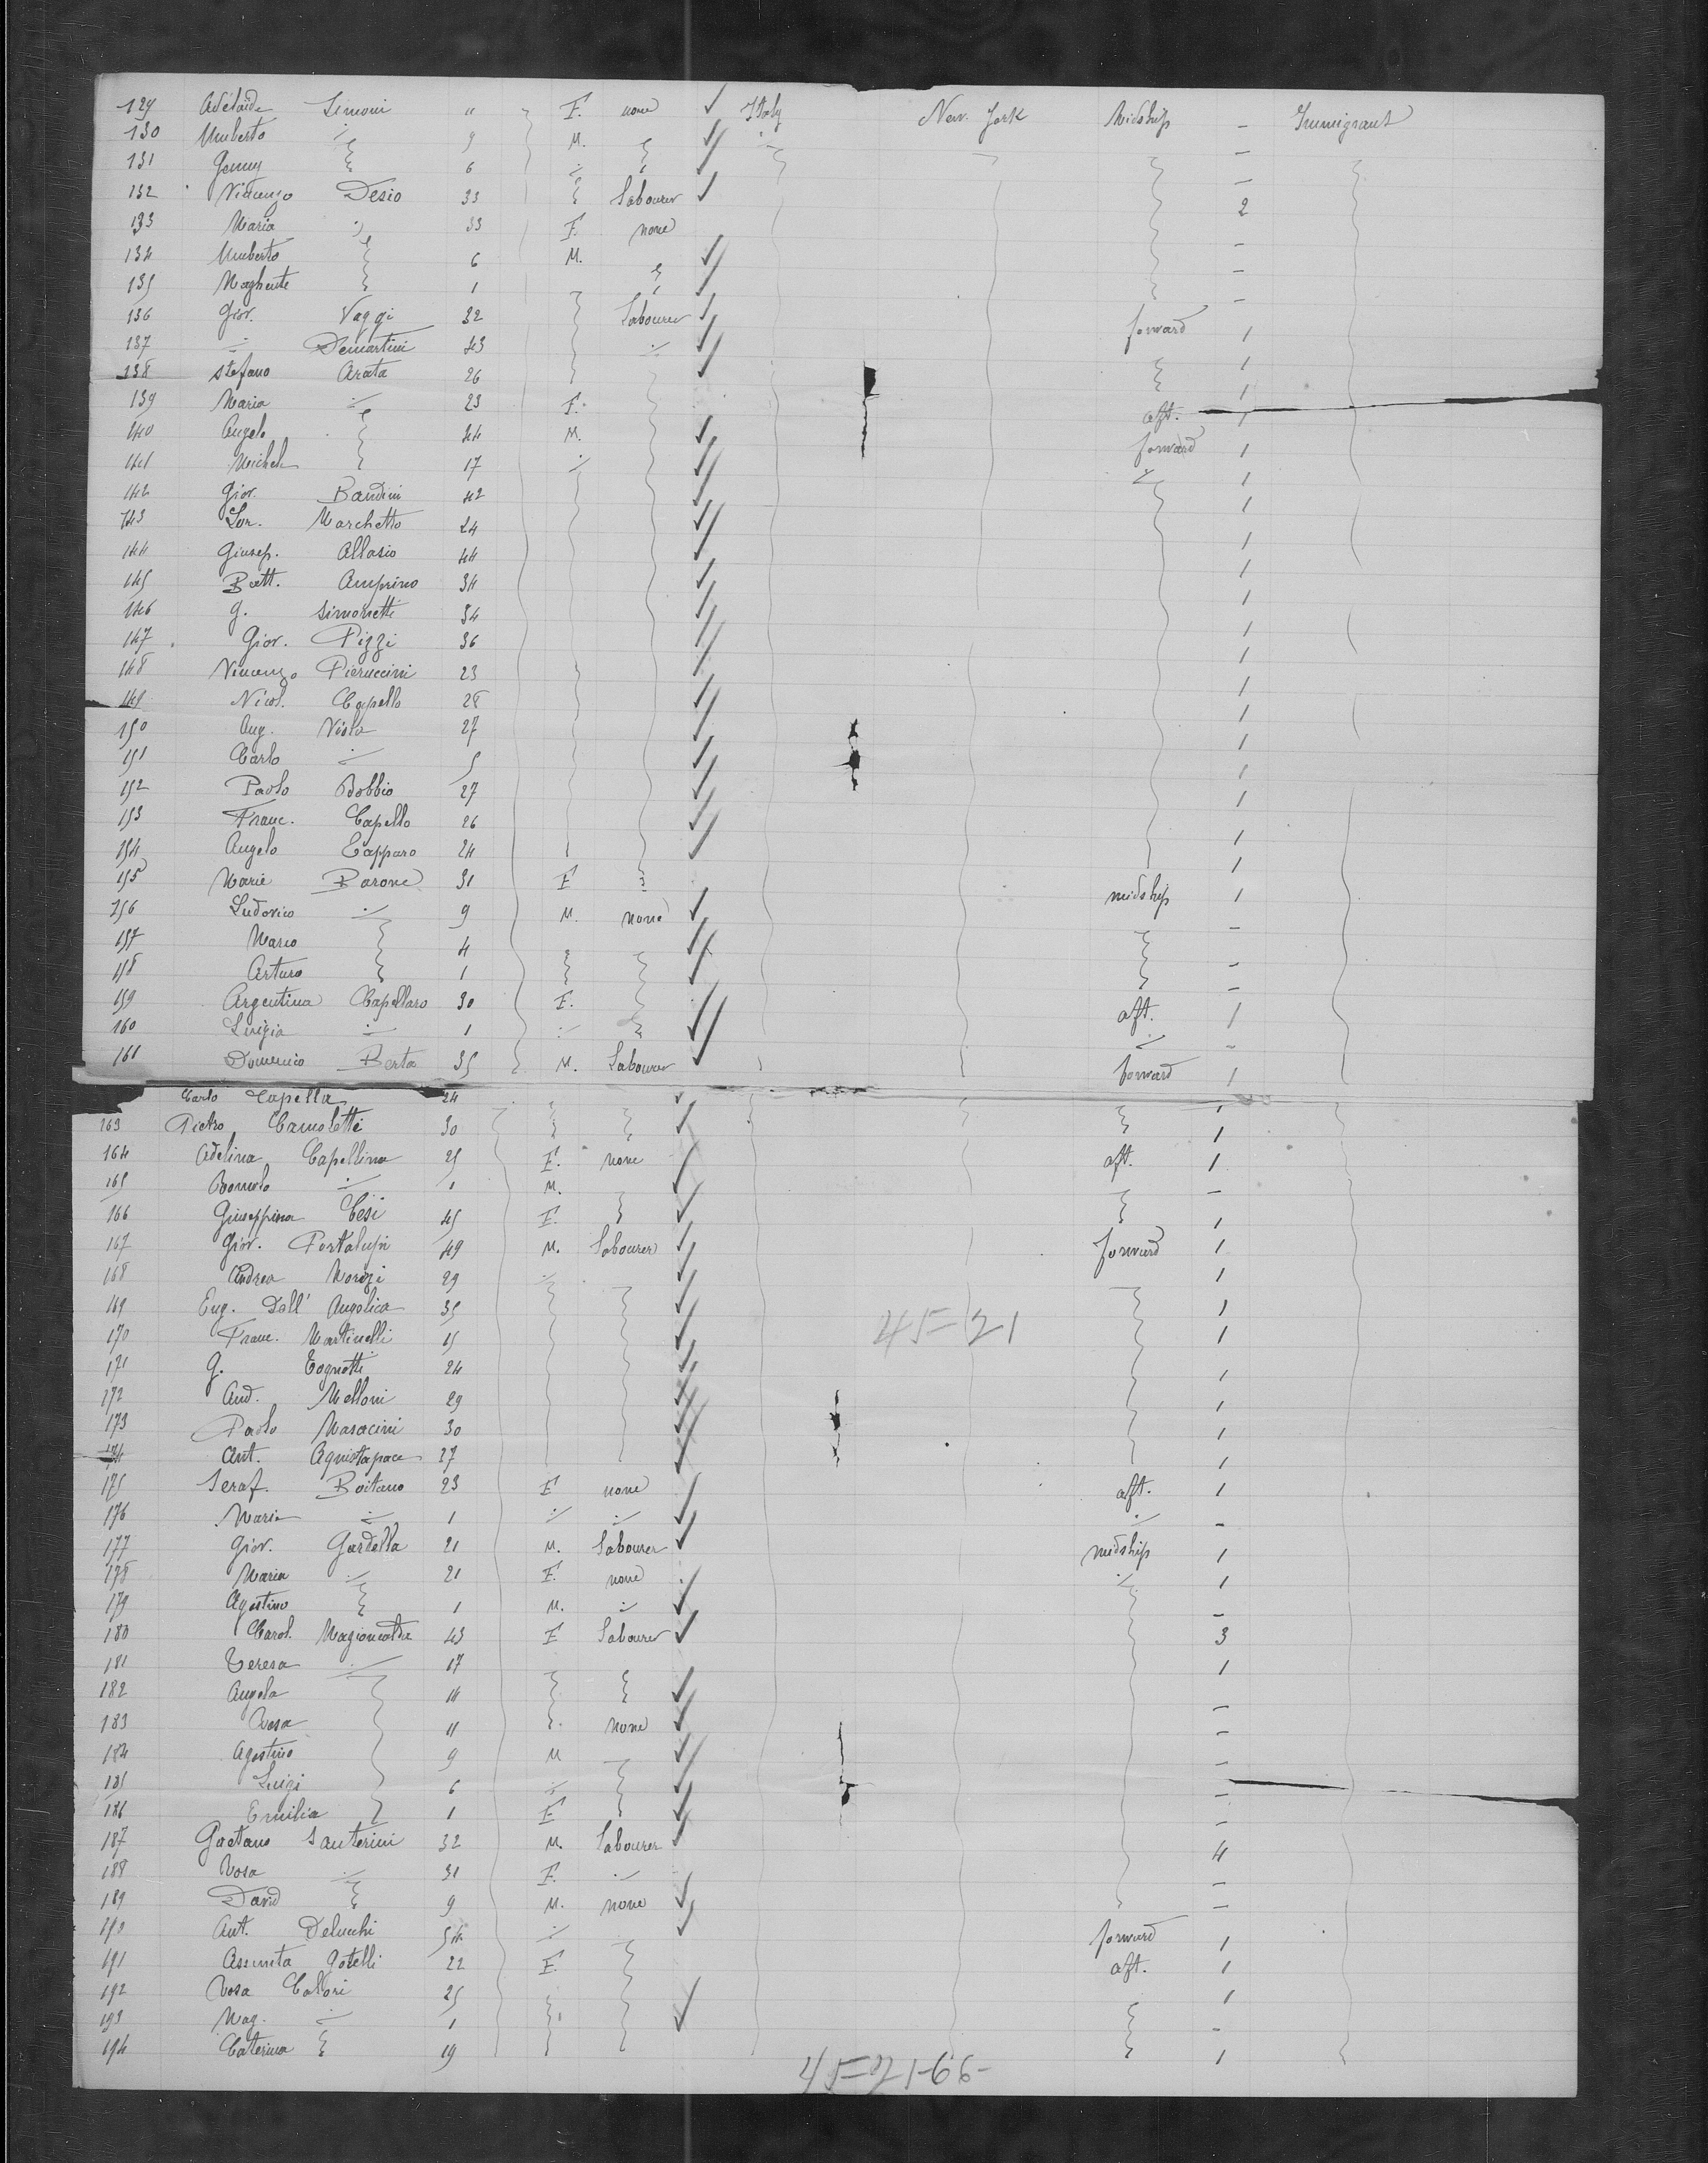 129 Adelaide Simoni " F. none ✓ Italy New-York Midship - Immigrant
130 Umberto ·/· 9 M. ✓ -
131 Genny 6 ·/· ✓ -
132 Desio 33 Labourer ✓ 2
133 Maria ·/· 33 F. none -
134 Umberto 6 M. ✓ -
135 1 ✓ -
136 Giov. Vaggi 32 Labourer ✓ forward 1
137 ·/· Demartini 43 ·/· ✓ 1
138 Stefano Arata 26 ✓ 1
139 Maria ·/· 23 F. aft. 1
140 Angelo 44 M. ✓ forward 1
141 Michele 17 ·/· ✓ ·/· 1
142 Giov. Bandini 42 ✓ 1
143 Lor. Marchetto 24 ✓ 1
144 Giusep. Allasio 44 ✓ 1
145 Batt. Amprino 34 ✓ 1
146 G. Simonetti 34 ✓ 1
147 Giov. Pizzi 36 ✓ 1
148 Vincenzo Pieruccini 23 1
149 Nicol. Capello 28 ✓ 1
150 Aug. Viola 27 ✓ 1
151 Carlo ·/· 5 ✓ 1
152 Paolo Bobbio 27 ✓ 1
153 Franc. Capello 26 ✓ 1
154 Angelo Capparo 24 ✓ 1
155 Marie Barone 31 F midship 1
156 Ludovico ·/· 9 M. none ✓ -
157 Marco 4 ✓ -
158 Arturo 1 ✓ -
159 Argentina Capellaro 30 F. ✓ aft. 1
160 Luigia ·/· 1 ·/· ✓ ·/· -
161 Domenico Berta 35 M. Labourer ✓ forward 1
Carlo Capella 24 ✓ 1
163 Pietro Camoletti 30 ✓ 1
164 Adelina Capellina 25 F. none ✓ aft. 1
165 Romolo ·/· 1 M. -
166 Giuseppina Cesi 45 F. ✓ 1
167 Giov. Portalupi 49 M. Labourer ✓ forward 1
168 Andrea Morizi 29 ·/· ✓ 1
169 Eug. Dell' Angelica 35 ✓ 1
170 Franc. Martinelli 15 ✓ 45=21 1
171 G. Tognotti 24 ✓ 1
172 And. Melloni 29 ✓ 1
173 Paolo Masacini 30 ✓ 1
174 Ant. Aquistapace 27 ✓ 1
175 Seraf. Boitano 23 F none ✓ aft. 1
176 Maria ·/· 1 ·/· ·/· ✓ ·/· -
177 Giov. Gardella 21 M. Labourer ✓ midship 1
178 Maria ·/· 21 F. none ·/· 1
179 Agostino 1 M. ·/· ✓ -
180 Carol. 43 F Labourer ✓ 3
181 Teresa ·/· 17 1
182 Angela 14 ✓ -
183 Rosa 11 none ✓ -
184 Agostino 9 M ✓ -
185 Luigi 6 ·/· ✓ -
186 Emilia 1 F ✓ -
187 Gaetano Santerini 32 M. Labourer ✓ 4
188 Rosa ·/· 31 F. ·/· -
189 David 9 M. none ✓ -
190 Ant. Delucchi 54 ·/· ✓ forward 1
191 Assunta Gotelli 22 F. aft. 1
192 Rosa Calori 25 ✓ 1
193 Mag. ·/· 1 ✓ -
194 Caterina 19 1
45=21-66-